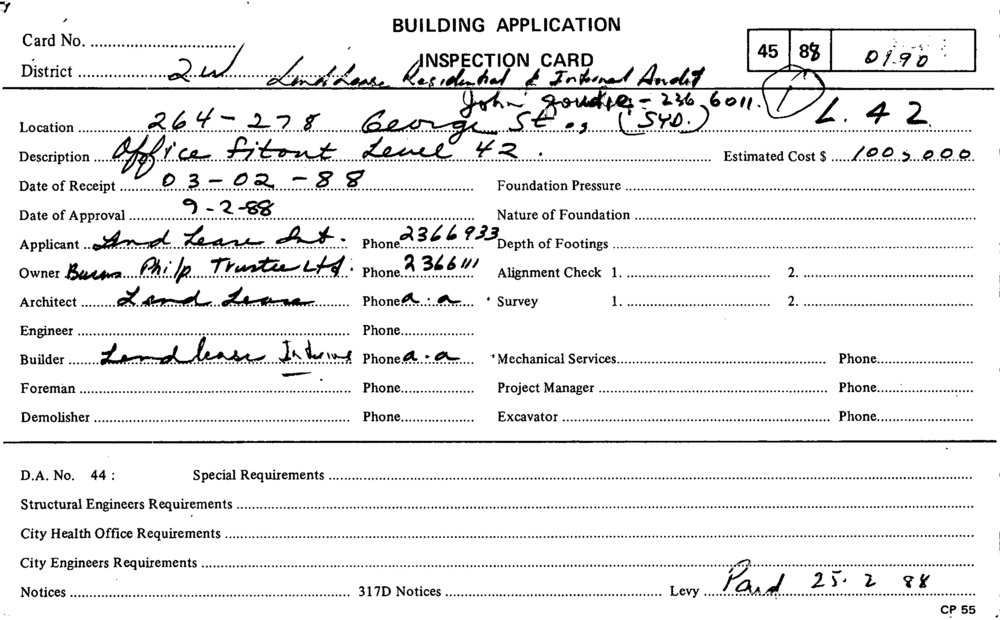 BUILDING APPLICATION
Card No.
INSPECTION CARD
45 88 0190
District 2W Lend Lease Residential & Internal Audit
John Goudie - 236 6011.
Location 264-278 George St., (SYD.) L.42
Description Office fitout Level 42. Estimated Cost $ 100,000
Date of Receipt 03-02-88 Foundation Pressure
Date of Approval 9-2-88 Nature of Foundation
Applicant Lend Lease Int. Phone 2366933 Depth of Footings
Owner Burns Philp Trustee Ltd. Phone 2366111 Alignment Check 1. 2.
Architect Lend Lease Phone a.a Survey 1. 2.
Engineer Phone
Builder Lend lease Phone a.a Mechanical Services Phone
Foreman Phone Project Manager Phone
Demolisher Phone Excavator Phone
D.A. No. 44 : Special Requirements
Structural Engineers Requirements
City Health Office Requirements
City Engineers Requirements
Notices 317D Notices Levy Paid 25. 2 88
CP 55